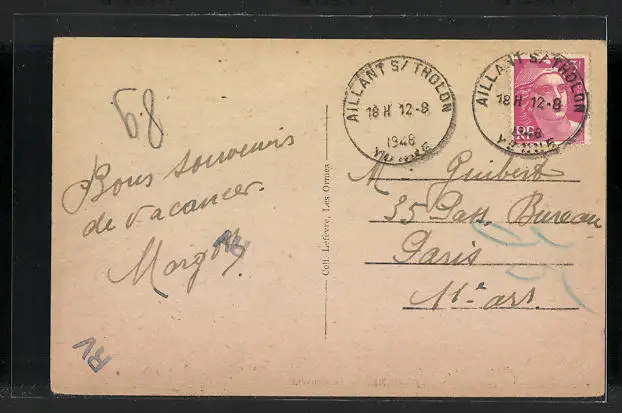 68
Bons souvenirs
de vacances.
Margot
RV
RV
Coll. Lefèvre, Les Ormes
AILLANT S/ THOLON
18 H 12-8
1948
YONNE
AILLANT S/ THOLON
18 H 12-8
1948
YONNE
M. Guibert
35 Pass. Bureau
Paris
11e arr.